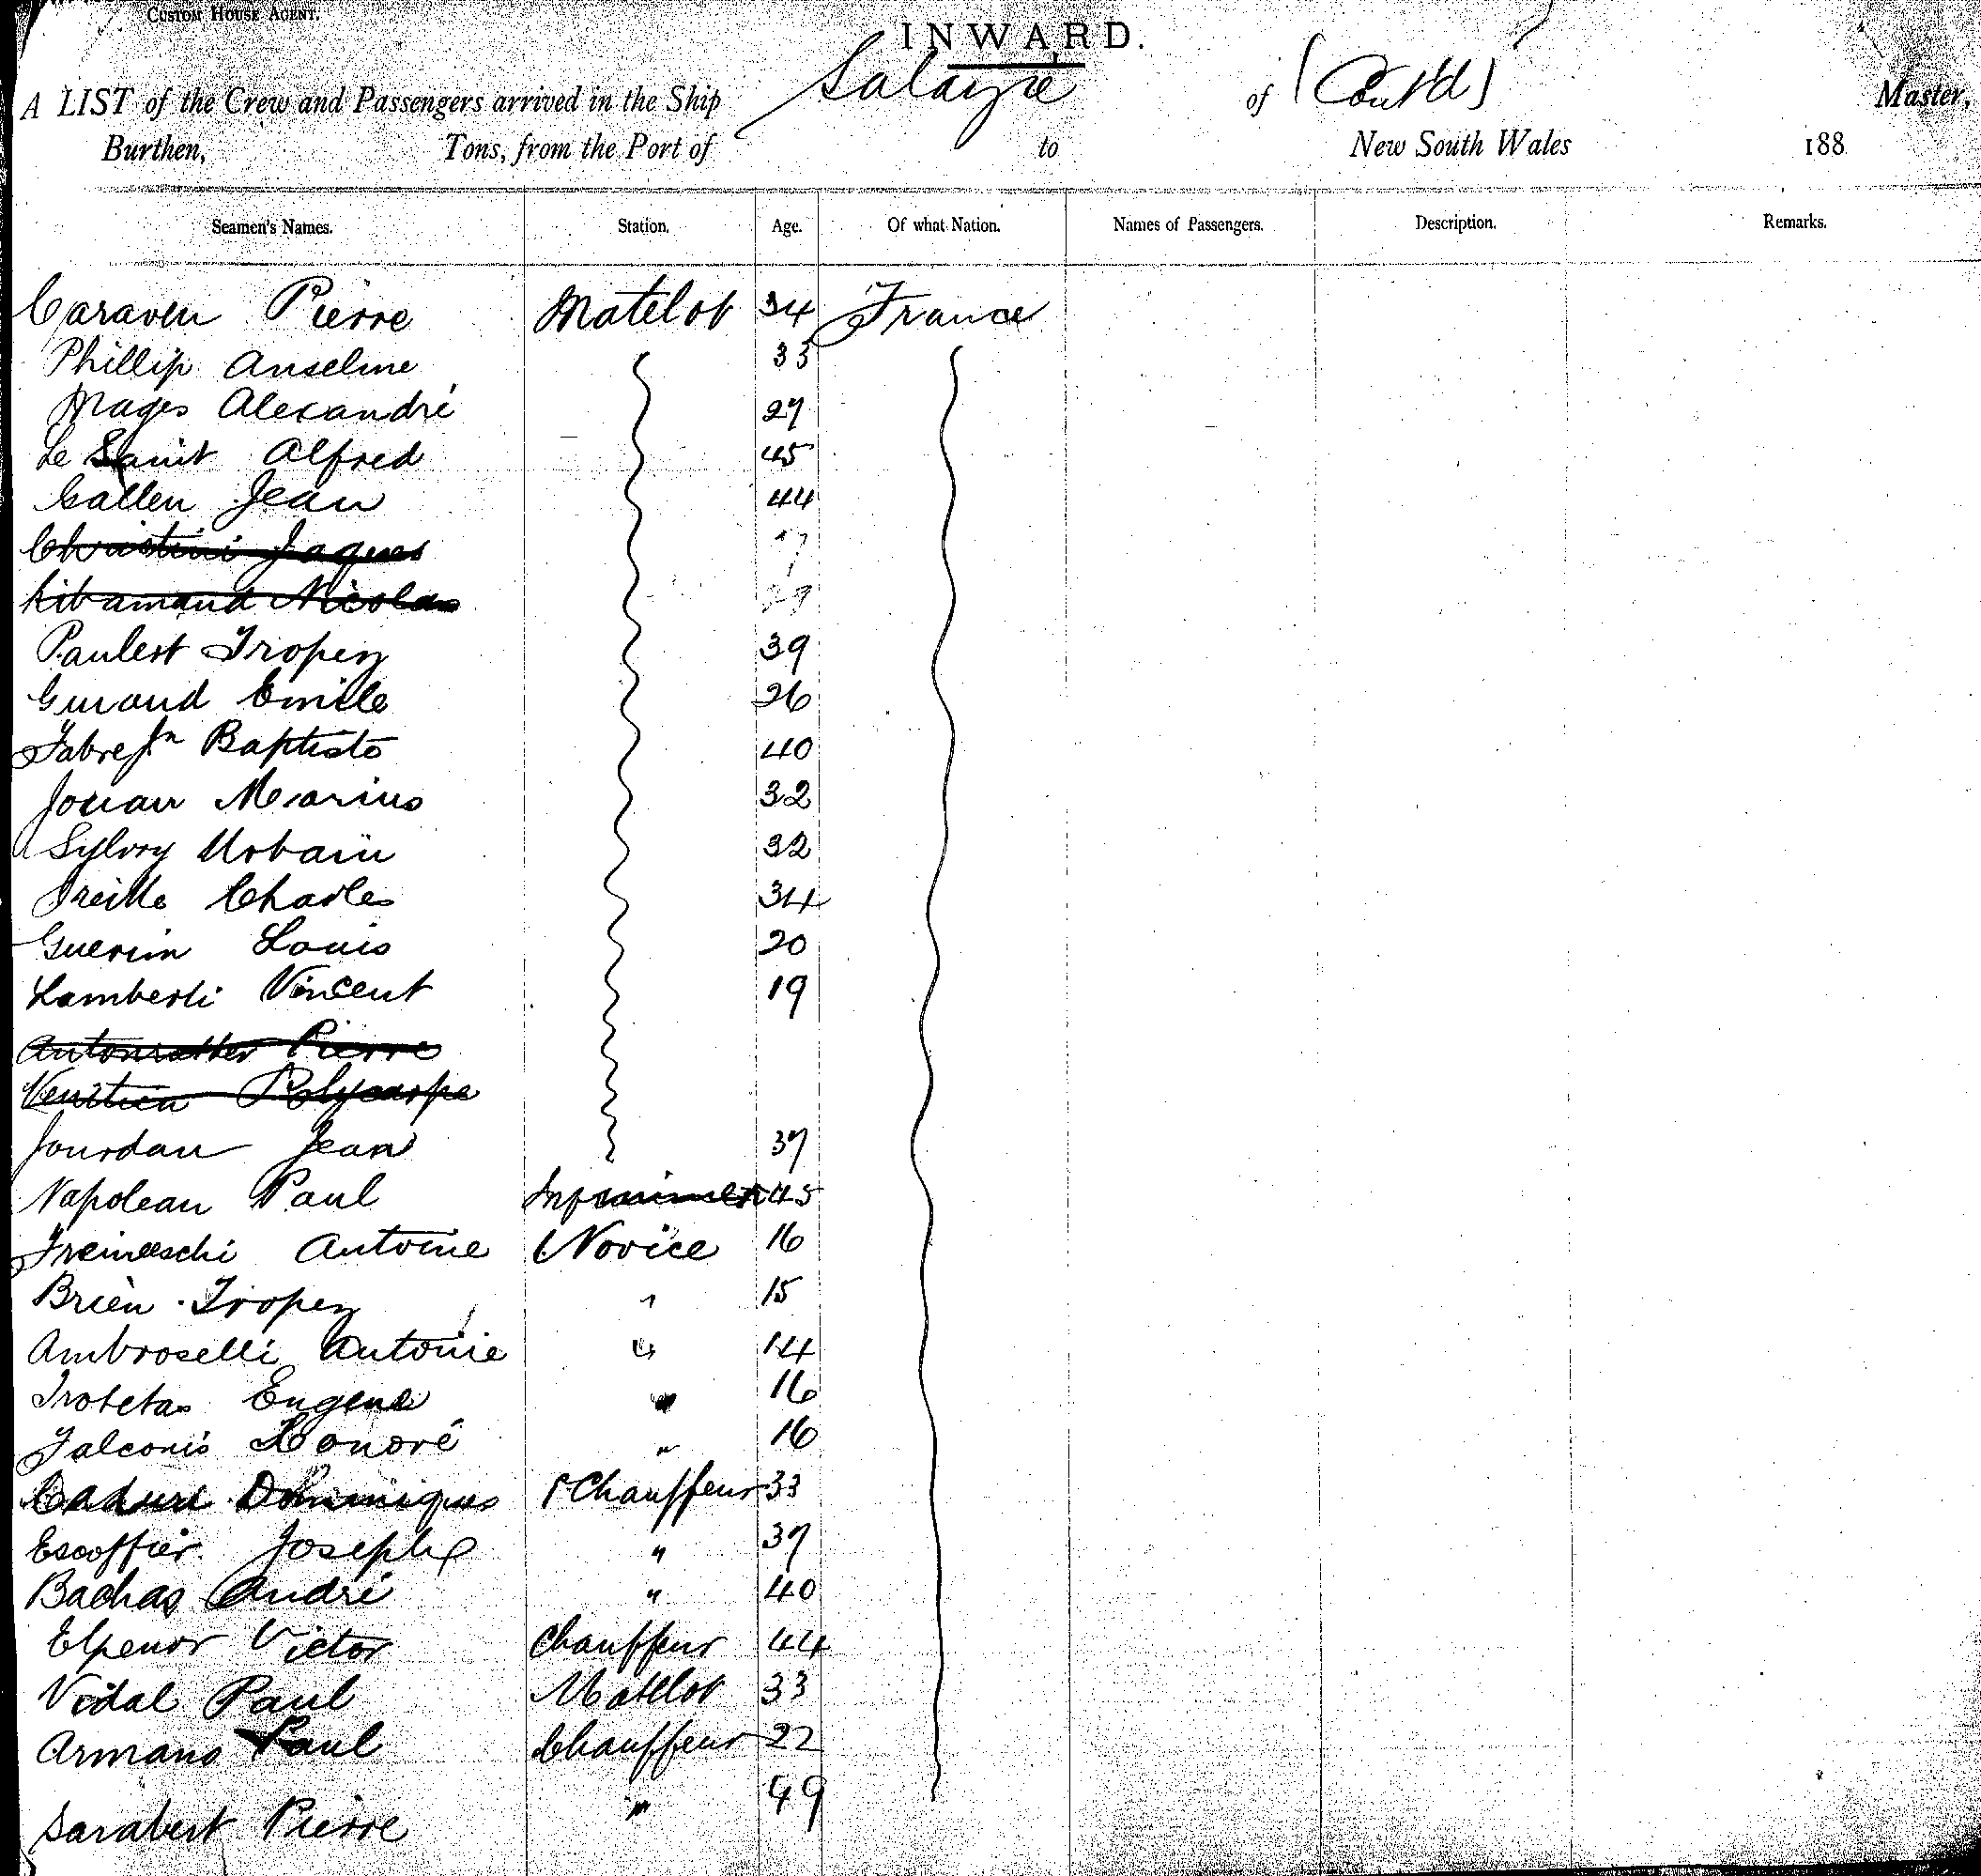 CUSTOM HOUSE AGENT.
INWARD.
A LIST of the Crew and Passengers arrived in the Ship Salazie of (Cont'd) Master,
Burthen, Tons, from the Port of to New South Wales 188
Seamen's Names. Station. Age. Of what Nation. Names of Passengers. Description. Remarks.
Caraven Pierre Matelot 34 France
Phillip Anselme 33
Mages Alexandré 27
Le Saint Alfred 45
Gallen Jean 44
Christini Jaques
Nicolas
Paulest Tropez 39
Guraud Emile 26
Fabre Jn Baptiste 40
Jouan Marius 32
Sylvry Urbain 32
Treille Charles 34
Guerin Louis 20
Lamberti Vincent 19
Pierre
Polycarpe
Jourdan Jean 37
Napolean Paul 45
Antoine Novice 16
Brien Tropez " 15
Ambroselli Antonie " 14
Trotetas Eugene " 16
Falconis Honoré " 16
Dominiques Chauffeur 33
Escoffier Joseph " 37
Bachas André " 40
Elpenor Victor Chauffeur 44
Vidal Paul Matelot 33
Armano Paul Chauffeur 22
Sarabert Pierre " 49